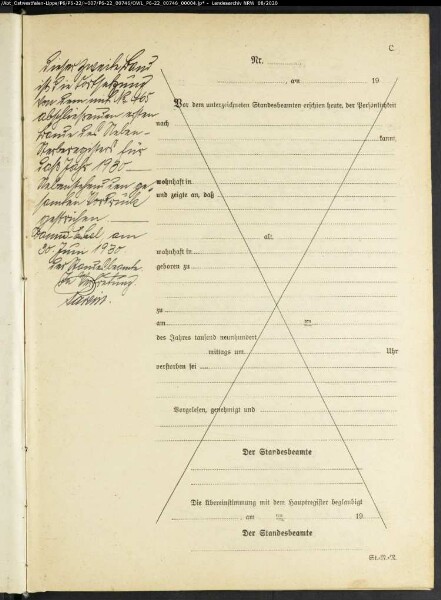 /Abt_Ostwestfalen-Lippe/P6/P6-22/~007/P6-22_00746/OWL_P6-22_00746_00004.jp* - Landesarchiv NRW 08/2020
C.
Dieser zweite Band
ist die Fortsetzung
von dem mit Nr. 465
abschliessenden ersten
Bande des Neben-
Sterberegisters für
das Jahr 1930
Nebenstehenden ge-
samten Vordruck
gestrichen
am
30. Juni 1930
Der Standesbeamte
In Vertretung
Nr.
, am 19
Vor dem unterzeichneten Standesbeamten erschien heute, der Persönlichkeit
nach
kannt,
wohnhaft in
und zeigte an, daß
alt
wohnhaft in
geboren zu
zu
am ten
des Jahres tausend neunhundert
mittags um Uhr
verstorben sei
Vorgelesen, genehmigt und
Der Standesbeamte
Die Übereinstimmung mit dem Hauptregister beglaubigt
, am ten 19
Der Standesbeamte
St.-R.-N.